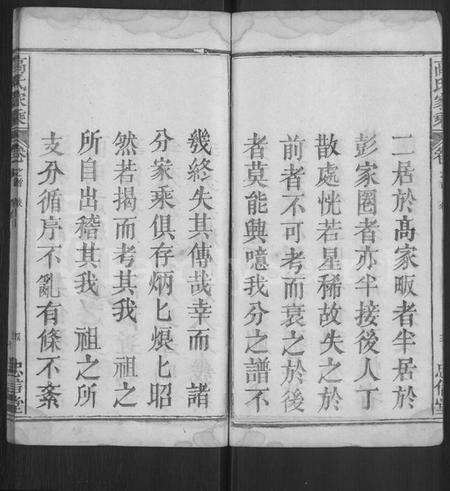 二居於髙家畈者半居於
彭家園者亦半接後人丁
散處恍若星稀故失之於
前者不可考而衰之於後
者莫能興噫我分之譜不
幾終失其傳哉幸而 諸
分家乘俱存炳匕烺匕昭
然若揭而考其我 祖之
所自出稽其我 祖之所
支分循序不亂有條不紊
高氏家乘
卷
忠信堂
高氏家乘
卷
忠信堂